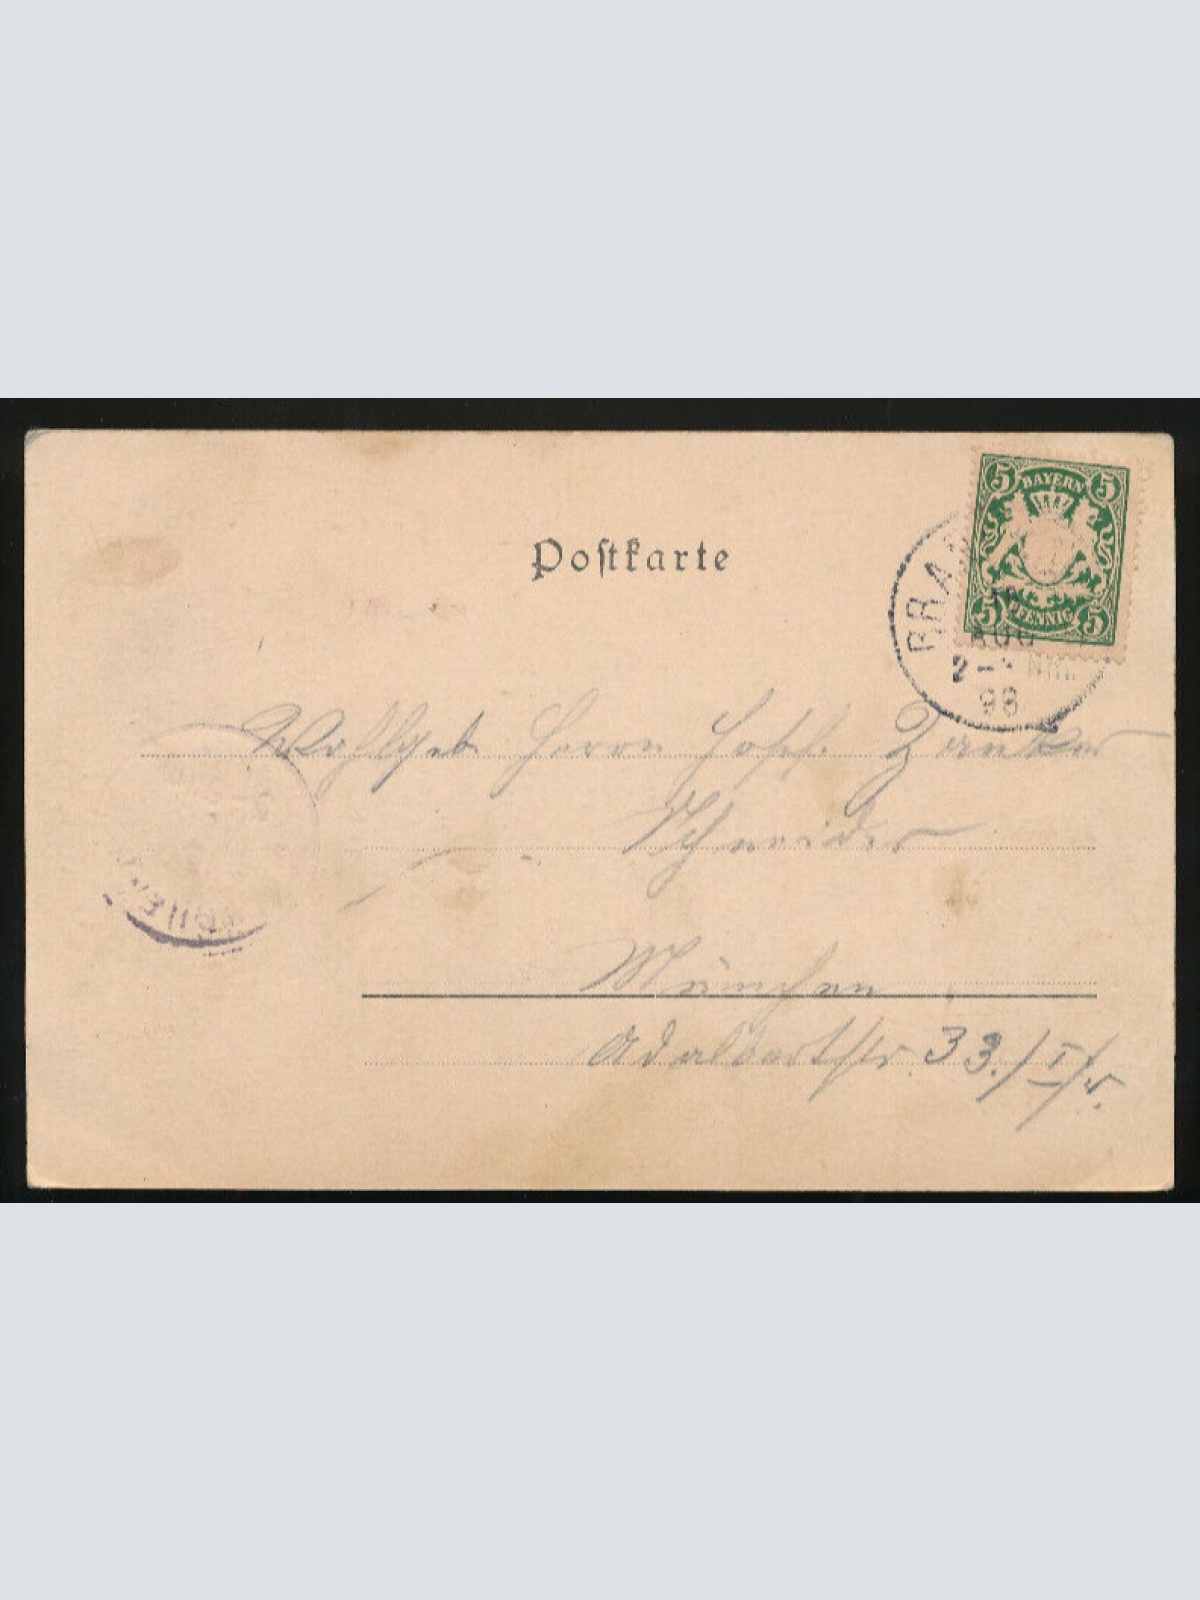 Postkarte
5 BAYERN 5
5 PFENNIG 5
AUG
98
Wohlgeb. Herrn Josef Zanker
Schneider
München
Adalbertstr. 33./I/r.